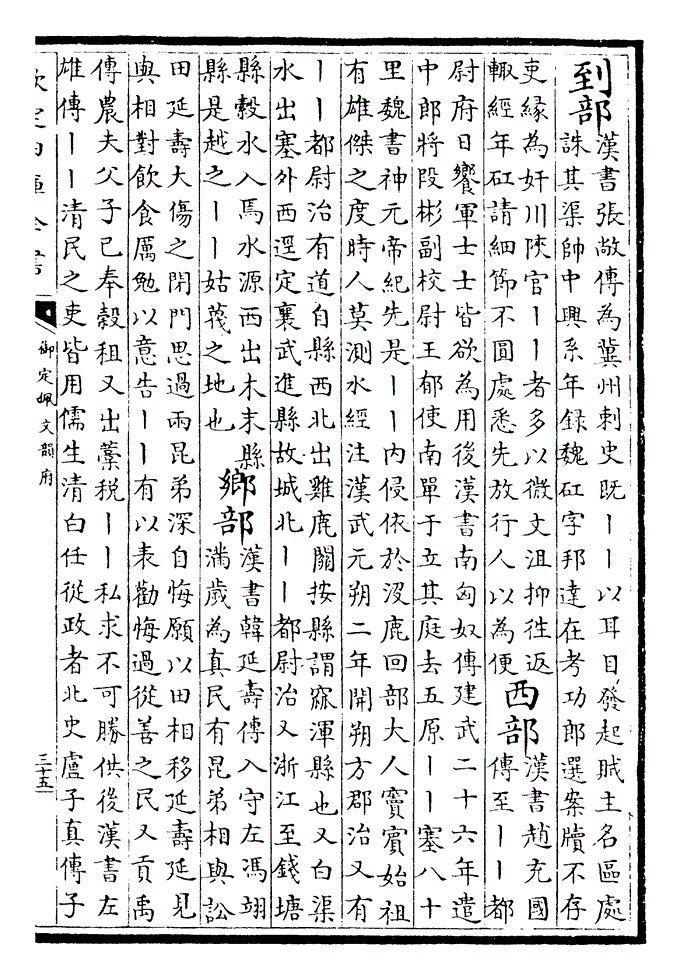 到部
漢書張敞傳為冀州刺史既丨丨以耳目發起賊主名區處
誅其渠帥中興系年錄魏矼字邦達在考功郎選案牘不存
吏緣為奸川陜官丨丨者多以微文沮抑徃返
輙經年矼請細節不圓處悉先放行人以為便
西部
漢書趙充國
傳至丨丨都
尉府日饗軍士士皆欲為用後漢書南匈奴傳建武二十六年遣
中郎將段彬副校尉王郁使南單于立其庭去五原丨丨塞八十
里魏書神元帝紀先是丨丨內侵依於沒鹿回部大人竇賓始祖
有雄傑之度時人莫測水經注漢武元朔二年開朔方郡治又有
丨丨都尉治有道自縣西北出雞鹿關按縣謂窳渾縣也又白渠
水出塞外西逕定襄武進縣故城北丨丨都尉治又浙江至錢塘
縣榖水入焉水源西出木末縣
縣是越之丨丨姑蔑之地也
鄉部
漢書韓延壽傳入守左馮翊
滿歲為真民有昆弟相與訟
田延壽大傷之閉門思過兩昆弟深自悔願以田相移延壽延見
與相對飲食厲勉以意告丨丨有以表勸悔過從善之民又貢禹
傳農夫父子已奉穀租又出藁稅丨丨私求不可勝供後漢書左
雄傳丨丨清民之吏皆用儒生清白任從政者北史盧子真傳子
欽定四庫全書
御定佩文韻府
三十五